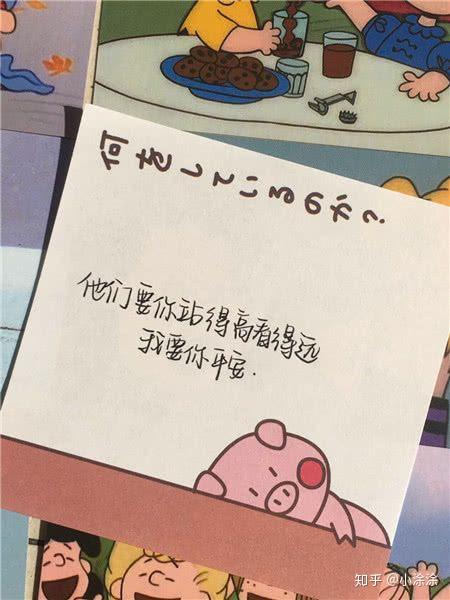 何をしているのか?
他们要你站得高看得远
我要你平安.
知乎 @小涂涂